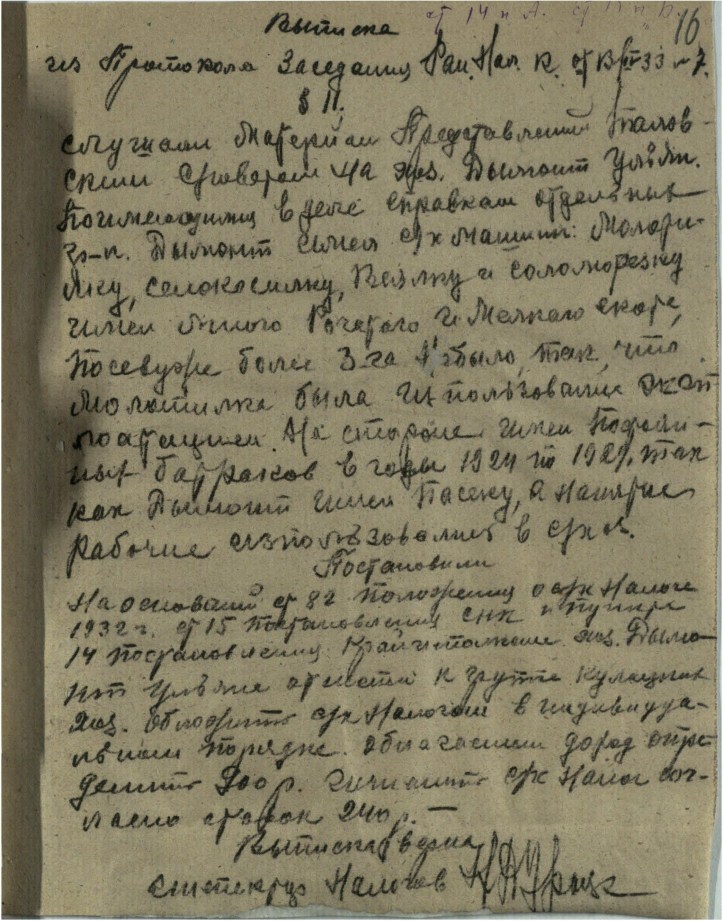 ст 14 п А. ст 15 п В.
16
Выписка
из Протокола Заседания Рай. Нал. К. от 33 № 7.
§ 11.
слушали Материал Представлений Талов-
ским с/советом на хоз. Дымонт Ульян.
По имеющимся в деле справкам отдельных
гр-н. Дымонт имел с/х машины: Молоти-
лку, сенокосилку, Веялку и соломорезку
имел много Рогатого и Мелкого скота,
Посевуже более 3-га было, так, что
Молотилка была использована экспл
лоатацией. На стороне имел
батраков в годы 1924 по 1929, так
как Дымонт имел Пасеку, а наятые
рабочие использовались в с/х.
Постановили
На основании ст 82 положения о с/х Налоге
1932 г. ст 15 Постановления СНК и пункта
14 постановления Крайисполкома хоз. Дымо-
нт Ульяна отнести к группе кулацких
хоз. обложить с/х Налогом в индивидуа-
льном порядке. облагаемый доход опре-
делить 900 р. с/х Налог сог-
ласно ставок 240 р. —
Выписка верна
Налогов